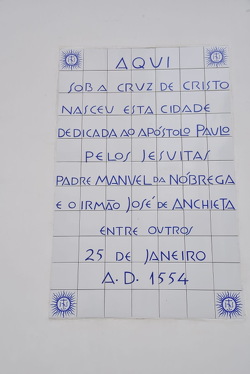 AQUI
SOB A CRUZ DE CRISTO
NASCEU ESTA CIDADE
DEDICADA AO APÓSTOLO PAULO
PELOS JESUITAS
PADRE MANUEL DA NÓBREGA
E O IRMÃO JOSÉ DE ANCHIETA
ENTRE OUTROS
25 DE JANEIRO
A.D. 1554